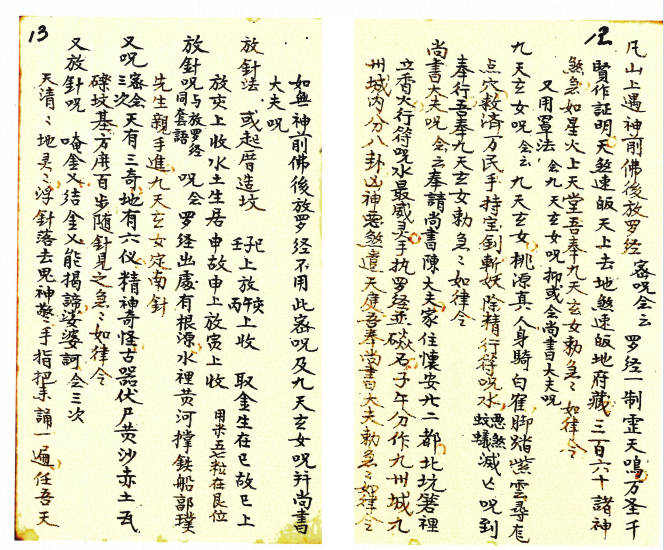 12
凡山上遇神前佛後放罗经 密咒会云 罗经一制灵天鳴万圣千
賢作証明天煞速皈天上去地煞速皈地府藏三百六十諸神
煞急如星火上天堂吾奉九天玄女勅急〻如律令
又用罩法 会九天玄女咒抑或会尚書大夫咒
九天玄女咒 会云 九天玄女桃源真人身騎白雀脚踏紫雲尋龙
点穴救济万民手持宝剑斬妖除精行符咒水 惡煞蚊蟻 滅亡咒到
奉行吾奉九天玄女勅急〻如律令
尚書大夫咒 会云 奉請尚書陳大夫家住懷安廾二都北坑箬裡
立香火行符咒水最威灵手执罗经並磁石子午分作九州城九
州城内分八卦凶神惡煞違天庭吾奉尚書大夫勅急〻如律令
13
如無神前佛後放罗经不用此密咒及九天玄女咒并尚書
大夫咒
放針法 或起厝造坟 壬子上放丙午上收 取金生在巳故巳上
放亥上收水土生居申故申上放寅上收 用米五粒在艮位
放針咒 与放罗经咒同套語 咒会 罗经出處有根源水裡黄河撑鉄船郭璞
先生親手進九天玄女定南針
又咒 密会三次 天有三奇地有六仪精神奇怪古器伏尸黄沙赤土瓦
礫坟基方廣百步随針見之急〻如律令
又放針咒 唵金乂结金乂能揭諦婆婆訶会三次
天清〻地灵〻浮針落去鬼神驚〻手指把手誦一遍任吾天